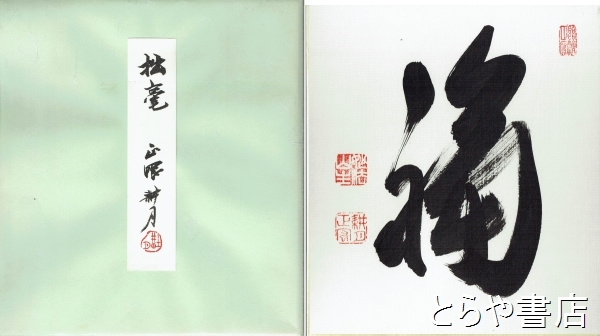 拙毫
正眼 耕月
福
とらや書店